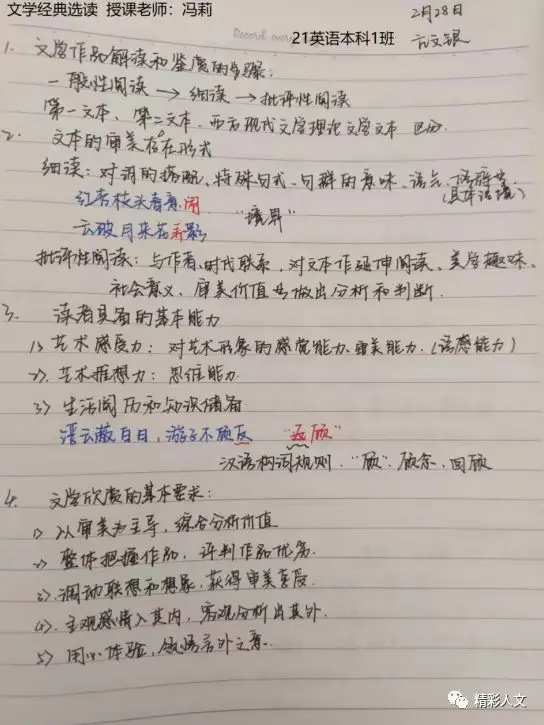 文学经典选读 授课老师：冯莉
2月28日
21英语本科1班
1. 文学作品解读和鉴赏的步骤：
一般性阅读 → 细读 → 批评性阅读
第一文本、第二文本、西方现代文学理论文学文本 区分.
2. 文本的审美存在形式
细读：对词的搭配、特殊句式、句群的意味、语气、
(具体语境)
红杏枝头春意闹
云破月来花弄影
"境界"
批评性阅读：与作者、时代联系，对文本作延伸阅读、美学趣味、
社会意义、审美价值去做出分析和判断.
3. 读者具备的基本能力
1) 艺术感受力：对艺术形象的感觉能力、审美能力.(语感能力)
2). 艺术推想力：思维能力.
3) 生活阅历和知识储备
浮云蔽白日，游子不顾反 "返顾"
汉语构词规则. "顾". 顾念、回顾
4. 文学欣赏的基本要求：
1) 以审美为主导，综合分析价值
2) 整体把握作品，评判作品优劣.
3). 调动联想和想象，获得审美喜爱.
4). 主观感情入其内，客观分析出其外.
5) 用心体验，领悟言外之意.
精彩人文